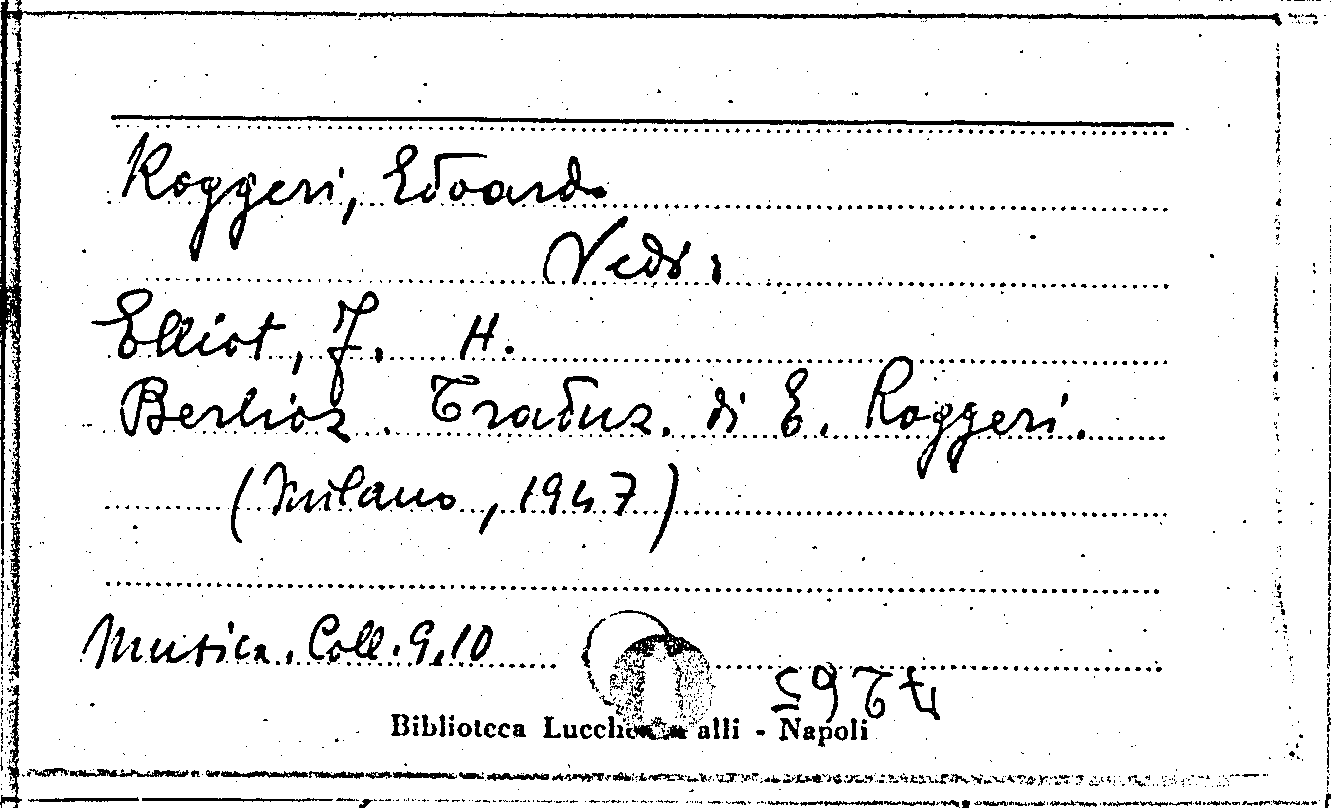 Roggeri, Edoardo
Vedi:
Elliot, J. H.
Berlioz. Traduz. di E. Roggeri.
(Milano, 1947)
Musica. Coll. 9.10
Biblioteca Lucchesi Palli - Napoli